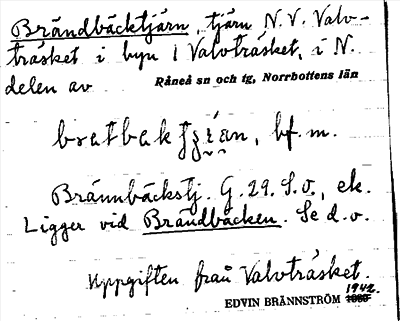 Brändbäcktjärn, tjärn N.V. Valv-
träsket i byn 1 Valvträsket, i N.
delen av Råneå sn och tg, Norrbottens län
bf. m.
Brännbäckstj. G. 29. S.v., ek.
Ligger vid Brändbäcken. Se d.o.
Uppgiften från Valvträsket.
EDVIN BRÄNNSTRÖM 1942.